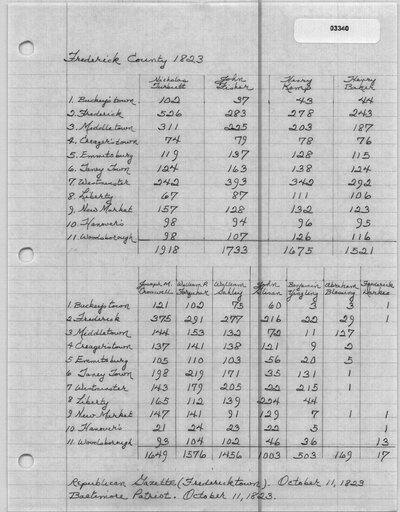 03340
Frederick County 1823
Nicholas Turbutt John Fisher Henry Kemp Henry Baker
1. Buckeystown 102 37 43 44
2. Frederick 526 283 278 243
3. Middletown 311 225 203 187
4. Creagerstown 74 79 78 76
5. Emmitsburg 119 137 128 115
6. Taney Town 124 163 138 124
7. Westminster 242 393 342 292
8. Liberty 67 87 111 106
9. New Market 157 128 132 123
10. Hanover's 98 94 96 95
11. Woodsborough 98 107 126 116
1918 1733 1675 1521
Joseph M. Cromwell William P. Farquhar William John Benjamin Yingling Abraham Blessing Frederick
1. Buckeystown 121 102 75 60 3 3
2. Frederick 375 291 277 216 22 29 1
3. Middletown 144 153 132 72 11 127
4. Creagerstown 137 141 138 121 9 2
5. Emmitsburg 105 110 103 56 20 5
6 Taney Town 198 219 171 35 131 1
7 Westminster 143 179 205 22 215 1
8 Liberty 165 112 139 224 44
9 New Market 147 141 91 129 7 1 1
10 Hanover's 21 24 23 22 5 1
11. Woodsborough 93 104 102 46 36 13
1649 1576 1456 1003 503 169 17
Republican Gazette (Fredericktown). October 11, 1823
Baltimore Patriot. October 11, 1823.